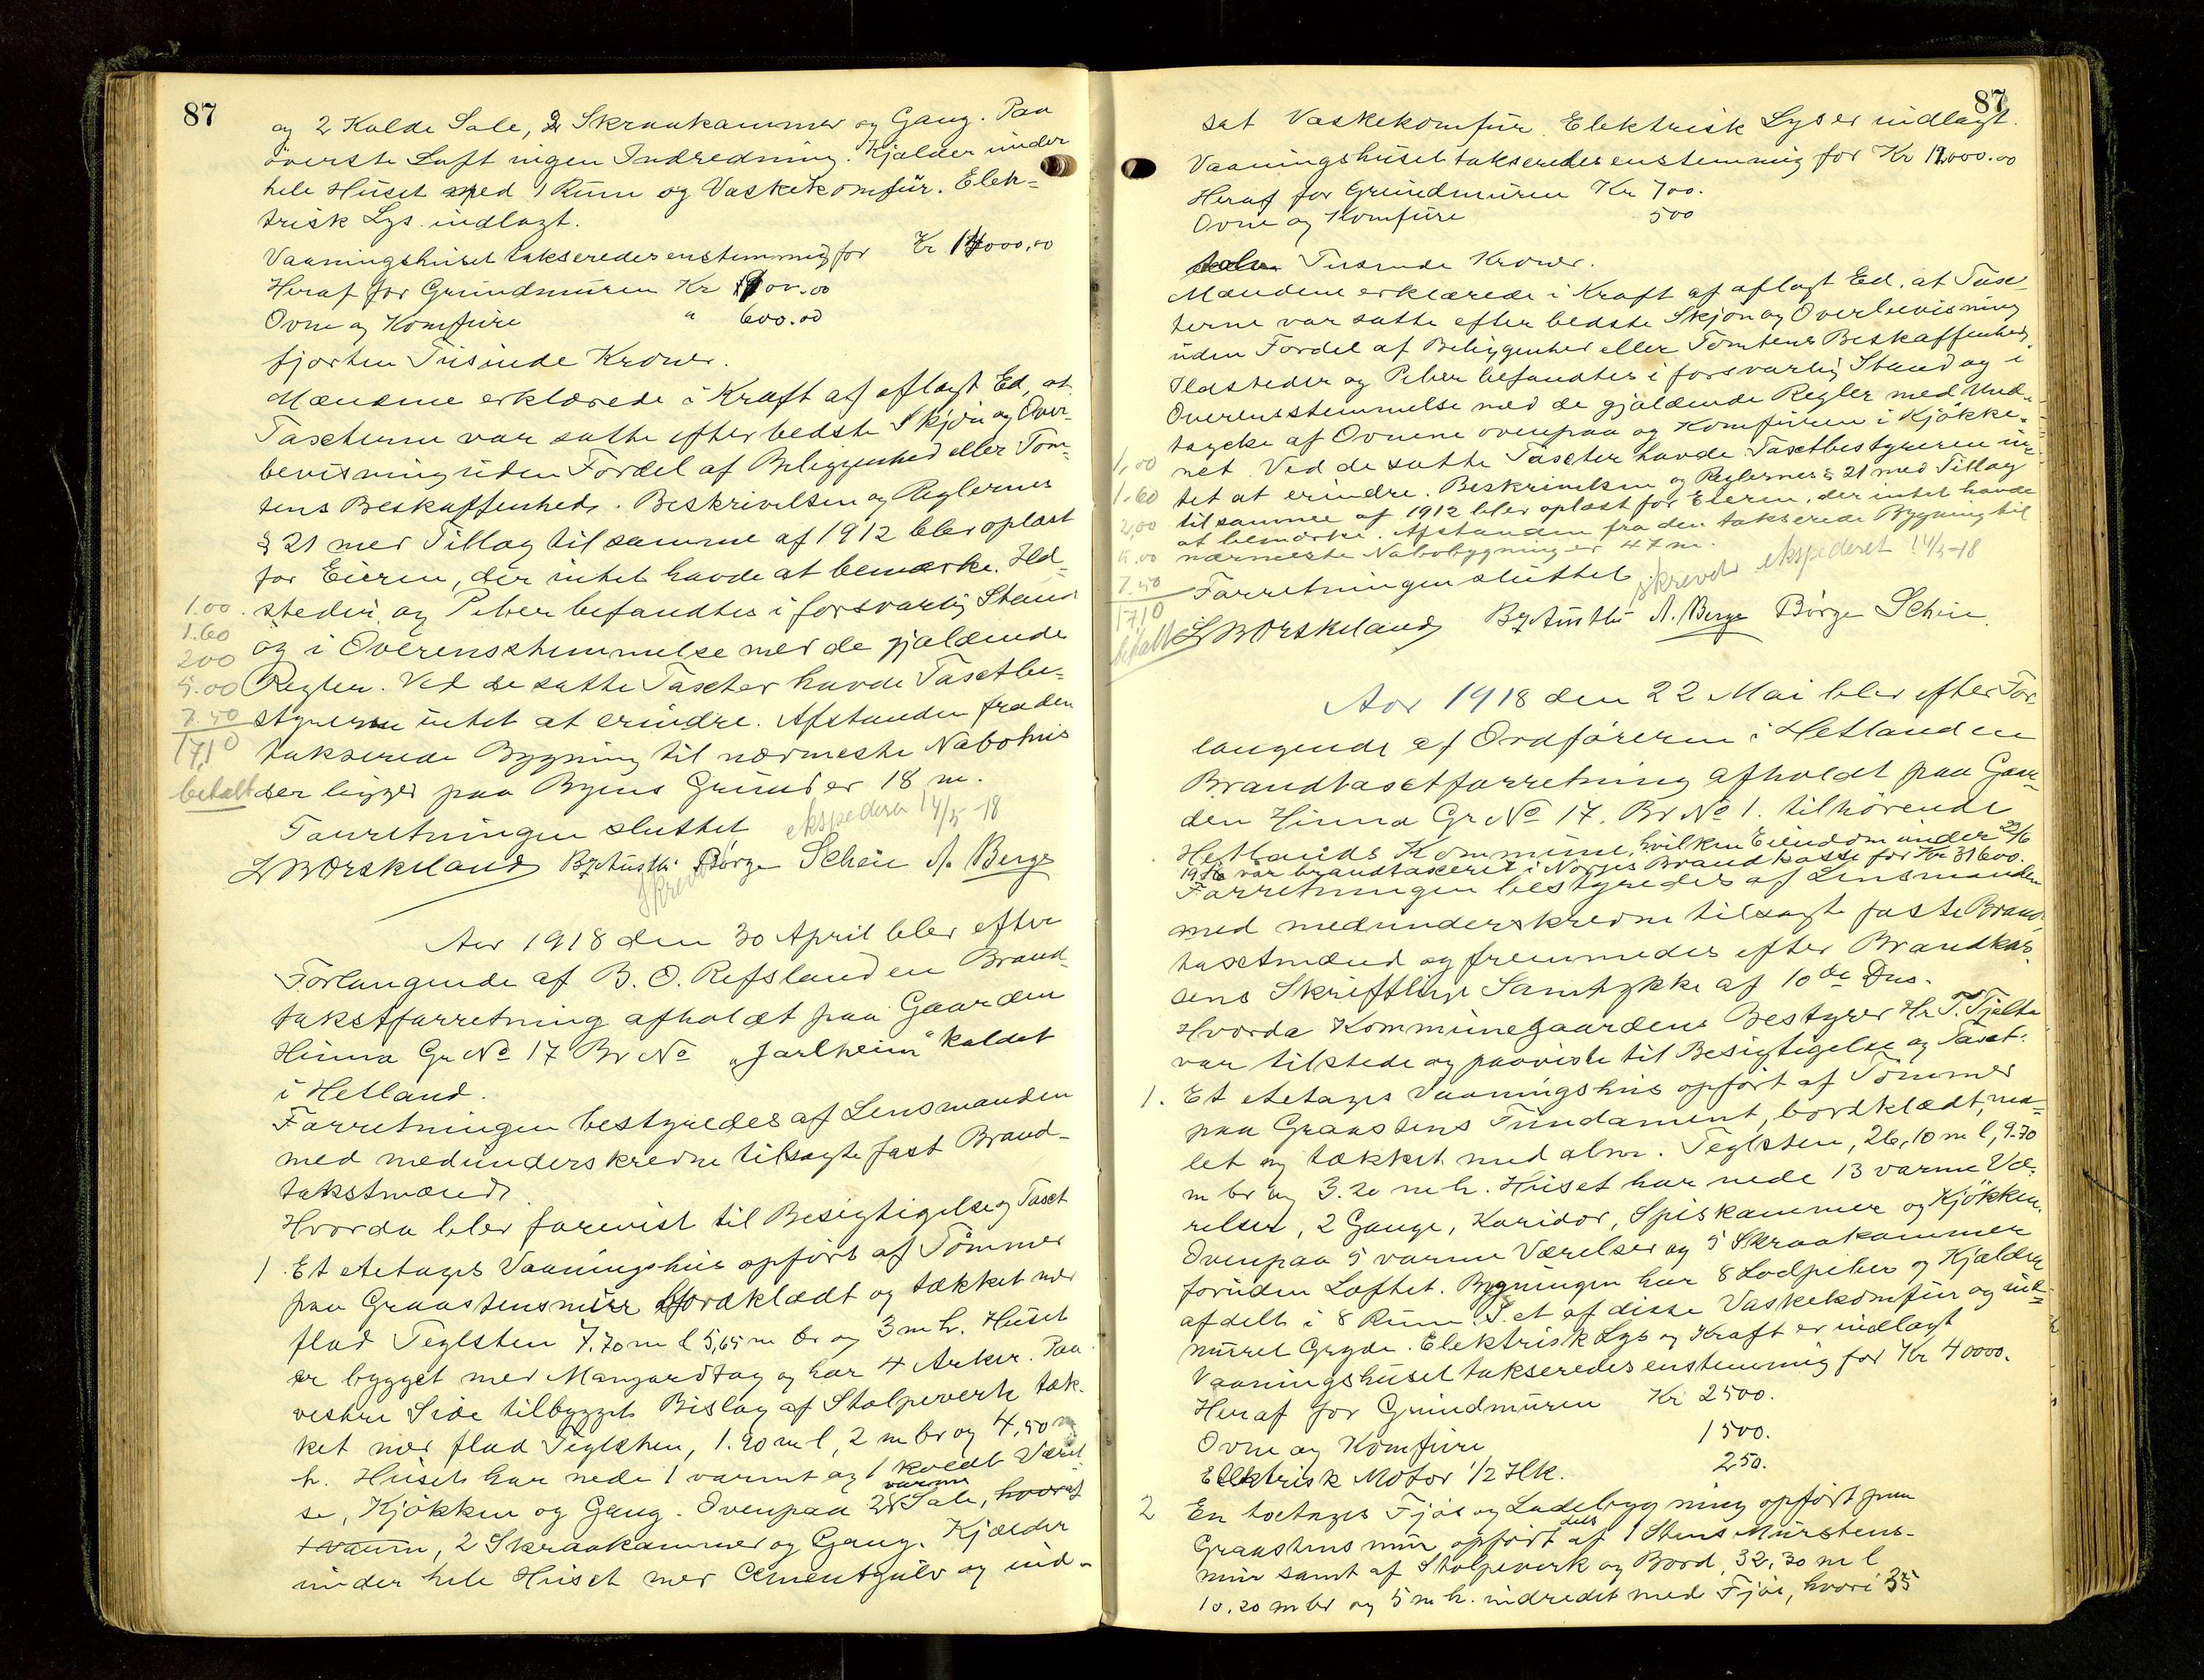 87
og 2 Kolde Sale, 2 Skraakammer og Gang. Paa
överste Loft ingen Indredning. Kjælder under
hele Huset med 1 Rum og Vaskekomfür. Elek=
trisk Lys indlagt.
Vaaningshuset takseredes enstemmig for Kr 14000.00
Heraf for Grundmuren Kr 1900.00
Ovne og Komfüre " 600.00
fjorten Tusinde Kroner.
Mændene erklærede i Kraft af aflagt Ed, at
Taxterne var satte efter bedste Skjön og Over-
bevisning uden Fordel af Beliggenhed eller Tom=
tens Beskaffenhed. Beskrivelsen og Reglernes
§ 21 med Tillæg til samme af 1912 blev oplæst
for Eieren, der intet havde at bemærke. Ild-
1.00 steder og Piber befandtes i forsvarlig Stand
1.60 og i Overensstemmelse med de gjældende
200
5.00 Regler. Ved de satte Taxter havde Taxtbe-
7.50 styreren intet at erindre. Afstanden fra den
17,10 takserede Bygning til nærmeste Nabohus
betalt der ligger paa Byens Grund er 18 m.
Forretningen sluttet ekspederet 14/5-18
L Worskeland B. Austbö Börge Scheie A. Berge
Skrevet
Aar 1918 den 30 April blev efter
Forlangende af B. O. Refsland en Brand-
takstforretning afholdt paa Gaarden
Hinna Gr No 17 Br No "Jarlheim" kaldet
i Hetland.
Forretningen bestyredes af Lensmanden
med medunderskrevne tilsagte fast Brand-
takstmænd.
Hvorda blev forevist til Besigtigelse og Taxt
1. Et etetages Vaaningshus opfört af Tömmer
paa Graastensmur bordklædt og tækket med
flad Teglsten 7.70 m l 5,65 m br og 3 m h. Huset
er bygget med Mansardtag og har 4 Arker. Paa
vestre Side tilbygget Bislag af Stolpeverk tæk-
ket med flad Teglsten, 1.90 m l, 2 m br og 4,50 m
h. Huset har nede 1 varmt og 1 koldt Værel
varme
se, Kjökken og Gang. Ovenpaa 2 Sale, hvoraf
1 varm, 2 Skraakammer og Gang. Kjælder
under hele Huset med Cementgulv og ind-
87
sat Vaskekomfür. Elektrisk Lys er indlagt.
Vaaningshuset takseredes enstemmig for Kr 12000.00
Heraf for Grundmuren Kr 700.
Ovne og Komfüre 500
tolv Tusinde Kroner.
Mændene erklærede i Kraft af aflagt Ed, at Tax-
terne var satte efter bedste Skjön og Overbevisning
uden Fordel af Beliggenhed eller Tomtens Beskaffenhed
Ildsteder og Piber befandtes i forsvarlig Stand og i
Overensstemmelse med de gjældende Regler med Und-
tagelse af Ovnene ovenpaa og Komfüren i Kjökke-
1,00 net. Ved de satte Taxter havde Taxtbestyreren in-
1.60 tet at erindre. Beskrivelsen og Reglernes § 21 med Tillæg
2,00 til samme af 1912 blev oplæst for Eieren, der intet havde
at bemærke. Afstanden fra den takserede Bygning til
5.00 nærmeste Nabobygning er 47 m.
7.50 Forretningen sluttet. skrevet ekspederet 14/5-18
17,10
betalt L Worskeland B. Austbö A. Berge Börge Scheie
Aar 1918 den 22 Mai blev efter For-
langende af Ordföreren i Hetland en
Brandtaxtforretning afholdt paa Gaar-
den Hinna Gr No 17. Br No 1. tilhörende
Hetlands Kommune, hvilken Eiendom under 22/6
1916 var brandtaxeret i Norges Brandkasse for Kr 31600.
Forretningen bestyredes af Lensmanden
med medunderskrevne tilsagte faste Brand-
taxtmænd og fremmedes efter Brandkas-
sens Skriftlige Samtykke af 10de Dns.
Hvorda Kommunegaardens Bestyrer Hr T. Tjelta
var tilstede og paaviste til Besigtigelse og Taxt.
1. Et etetages Vaaningshus opfört af Tömmer
paa Graastens Fundament, bordklædt, ma-
let og tækket med alm. Teglsten, 26,10 m l, 9.70
m br og 3.20 m h. Huset har nede 13 varme Væ-
relser, 2 Gange, Koridor, Spiskammer og Kjökken.
Ovenpaa 5 varme Værelser og 5 Skraakammer
foruden Loftet. Bygningen har 8 Lodpiber og Kjælder
afdelt i 8 Rum. I et af disse Vaskekomfür og ind-
muret Gryde. Elektrisk Lys og Kraft er indlagt
Vaaningshuset takseredes enstemmig for Kr 40000.
Heraf for Grundmuren Kr 2500.
Ovne og Komfüre 1500.
Elektrisk Motor 1/2 HK. 250.
2 En toetages Fjös og Ladebygning opfört paa
Graastens mur, opfört dels af 1 Stens Murstens-
mur samt af Stolpeverk og Bord, 32,30 m l
10.20 m br og 5 m h. indredet med Fjös, hvori 35